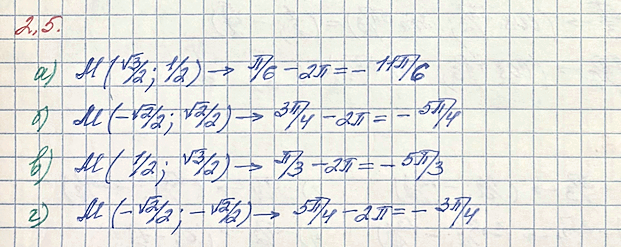 2.5.
а) M(√3/2; 1/2) → π/6 - 2π = - 11π/6
б) M(-√2/2; √2/2) → 3π/4 - 2π = - 5π/4
в) M(1/2; √3/2) → π/3 - 2π = - 5π/3
г) M(-√2/2; -√2/2) → 5π/4 - 2π = - 3π/4